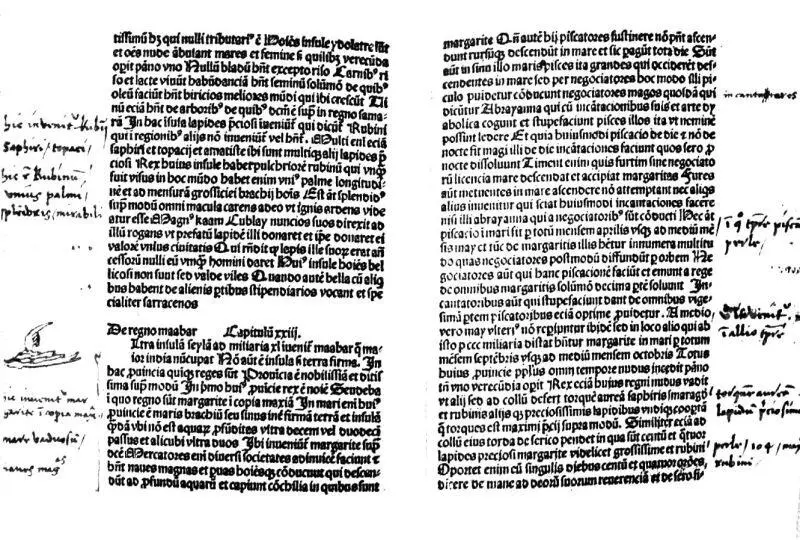 tissimũ dʒ qui nulli tributari⁹ ē Hoĩes insule ydolatre sũt
et oẽs nude ãbulant mares et femine sʒ quilibʒ verecũda
opit pãno vno Nullũ bladũ hñt excepto riso Carnibꝰ ri
so et lacte viuũt habũdãcia hñt seminũ solũmõ de quibꝰ
oleũ faciũt hñt biricios meliores mũdi qui ibi crescũt Ui
nũ eciã hñt de arboribꝰ de quibꝰ dcm̃ ē sup̃ in regno sama
rã In hac ĩsula lapides p̃ciosi ĩueniũt̃ qui dicũt̃ Rubini
qui ĩ regionibꝰ alijs nõ inueniũt̃ vel hñt. Multi eni eciã
saphiri et topacij et amatiste ibi sunt multiqʒ alij lapides p̃
ciosi Rex huius insule habet pulchriorẽ rubinũ qui vnqʒ
fuit visus in hoc mũdo habet enim vniꝰ palme longitudi
nẽ et ad mensurã grossiciei brachij hoĩs Est at̃ splendidꝰ
sup̃ modũ omni macula carens adeo vt ignis ardens vide
atur esse Magnꝰ kaam Cublay nuncios suos direxit ad
illũ rogans vt prefatũ lapidẽ illi donaret et ip̃e donaret ei
valorẽ vnius ciuitatis Qui rñdit qʒ lapis ille suoʒ erat añ
cessorũ nulli eũ vnqʒ homini daret Huiꝰ insule hoĩes bel
licosi non sunt sed valde viles Quando autẽ bella cũ aliq̃
bus habent de alienis p̃tibus stipendiarios vocant et spe
cialiter sarracenos
De regno maabar Capitulũ xxiij.
Ultra insulã seylã ad miliaria xl iueniť maabar q̃ ma
ior india nũcupat̃ Nõ aũt ē insula sʒ terra firma. In
hac p̃uincia quiqʒ reges sũt Prouĩcia ē nobilissiã et ditis
sima sup̃ modũ In p̃mo huiꝰ p̃uicie rex ē noĩe Seudeba
i quo regno sũt margarite ĩ copia maxiã In mari eni huiꝰ
p̃uincie ē maris brachiũ seu sinus inẽ firmã terrã et insulã
q̃dã vbi nõ est aquaʒ p̃fũditas vltra decem vel duodecĩ
passus et alicubi vltra duos Ibi inueniũt̃ margarite sup̃
dcẽ Mercatores eni diuersi societates adinuicẽ faciunt et
hñt naues magnas et p̃uas hoĩesqʒ cõducunt qui descen
dũt ad p̃fundũ aquarũ et capiunt cõchilia in quibus sunt
hic inveniũt̃ Rubinj
Saphiri / topacij /
hic ē Rubinũ
vnius palmi /
splendens / mirabilis
hic inveniũt̃ mar
garite ĩ copia max̃
mare vadosũ /
naues mag̃as
margarite Qñ autẽ hij piscatores sustinere nõ pñt ascen
dunt rursũqʒ descendũt in mare et sic p̃agũt tota die Sũt
aũt in sinu illo maris pisces ita grandes qui occiderẽt des
cendentes in mare sed per negociatores hoc modo illi pi
culo puidetur cõducunt negociatores magos quosdã qui
dicũtur Abrayanna qui cũ incãtacionibus suis et arte dy
abolica cogunt et stupefaciunt pisces illos ita vt neminẽ
possint ledere Et quia huiusmodi piscacio de die ē nõ de
nocte fit magi illi de die incãtaciones faciunt quos sero p̃
nocte dissoluunt Timent enim quis furtim sine negociato
rũ licencia mare descendat et accipiat margaritas Fures
aũt metuentes in mare ascendere nõ attemptant nec aliqs
alius inuenitur qui sciat huiusmodi incantaciones facere
nisi illi abrayanna qui a negociatoribꝰ sũt cõducti Hec at̃
piscacio ĩ mari fit p̃ totũ mensem aprilis vsqʒ ad mediũ mẽ
sis may et tũc de margaritis illis hẽtur innumera multitu
do quas negociatores postmodũ diffundũt p̃ orbem Ne
gociatores aũt qui hanc piscacionẽ faciũt et emunt a rege
de omnibus margaritis solũmõ decima p̃tẽ soluunt In
cantatoribus aũt qui stupefaciunt dant de omnibus vige
simã p̃tem p̃iscatoribus eciã optime p̃uidetur. A medio
vero may vlteriꝰ nõ reg̃iuntur ibidẽ sed in loco alio qui ab
isto p̃ ccc miliaria distat hñtur margarite in mari p̃ totum
mẽsem septẽbris vsqʒ ad mediũ mensem octobris Totus
huius, puincie pp̃lus omni tempore nudus incedit pãno
tñ vno verecũdia opit Rex eciã huius regni nudus vadit
vt alij sed ad collũ defert torquẽ aureã saphiris smaragdꝰ
et rubinis alijs qʒ preciosissimis lapidibus vndiqʒ coop̃tã
q̃ torques est maximi p̃cij supra modũ. Similiter eciã ad
collũ eius torda de serico pendet in qua sũt centũ et q̃tuor
lapides preciosi margarite videlicet grossissime et rubini
Oportet enim eũ singulis diebus centũ et quatuor orões,
dicere de mane ad deorũ suorum reuerenciã et de sero si
incantatores
ĩ qº tp̃re piscãt̃
perle /
ĩ alio tp̃re
torquẽ aureã
lapidũ p̃ciosiss
perle / 104 / may
rubini